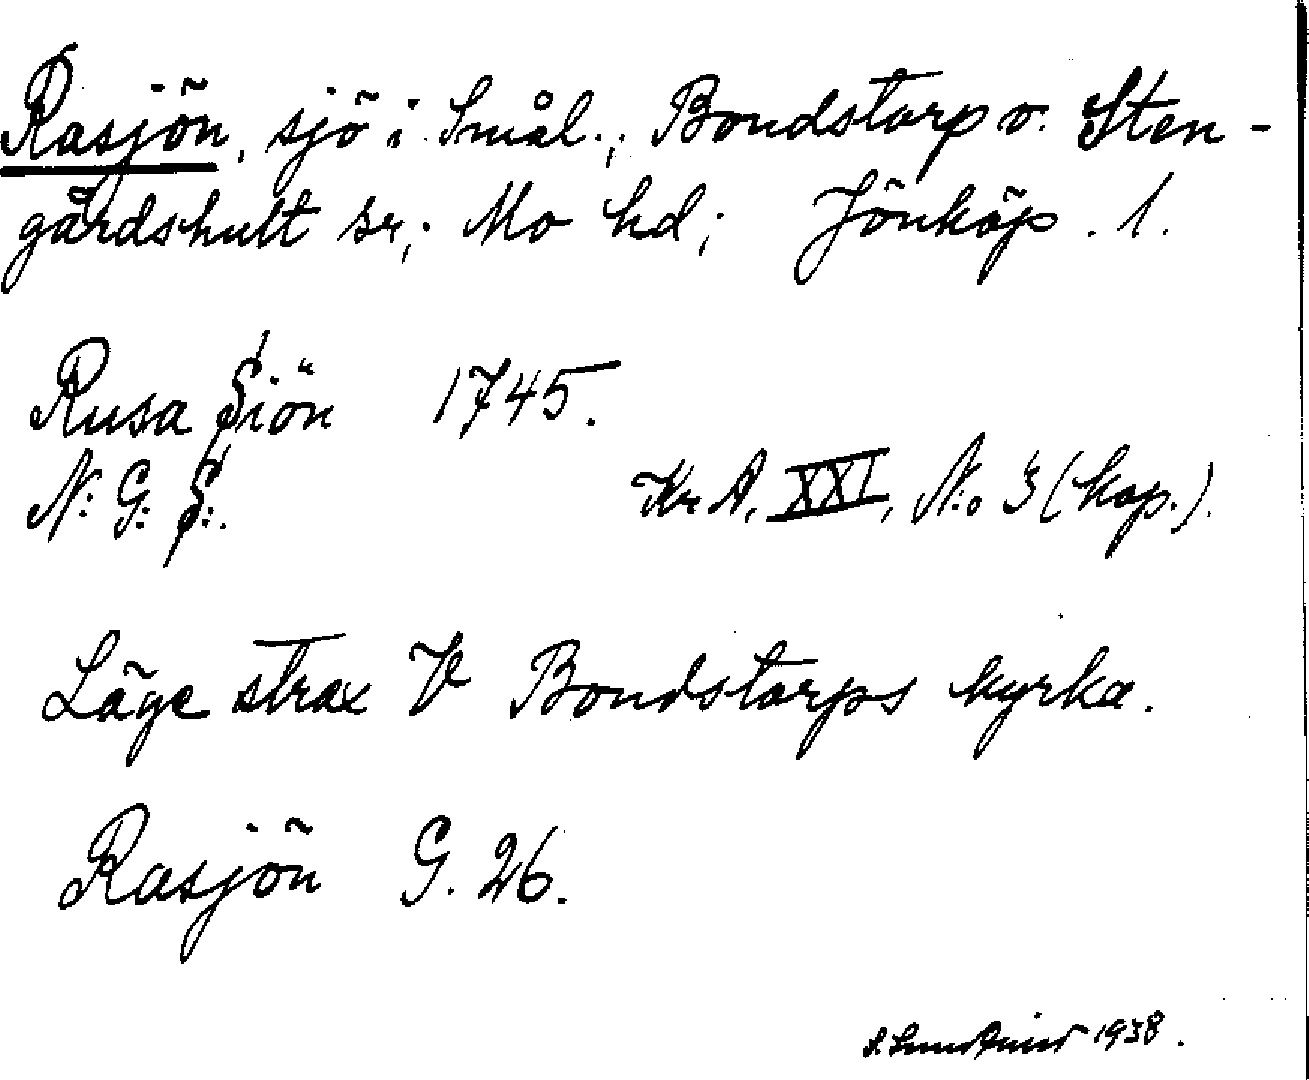 Rasjön, sjö i Smål., Bondstorp o. Sten-
gårdshult sr,; Mo hd; Jönköp. l.
Rusa Siön 1745.
N: G: S:. Kr A, XXI, N:o 3 (kop.).
Läge strax V Bondstorps kyrka.
Rasjön G. 26.
1938.